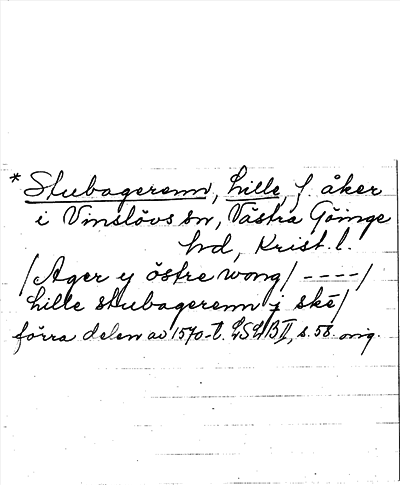 * Stubagerenn, hille, f. åker
i Vinslövs sn, Västra Göinge
hd, Krist. l.
/Ager y östre wong/ ----/
hille stubagerenn j skē/
förra delen av 1570-t. LSLB II, s. 58. orig.